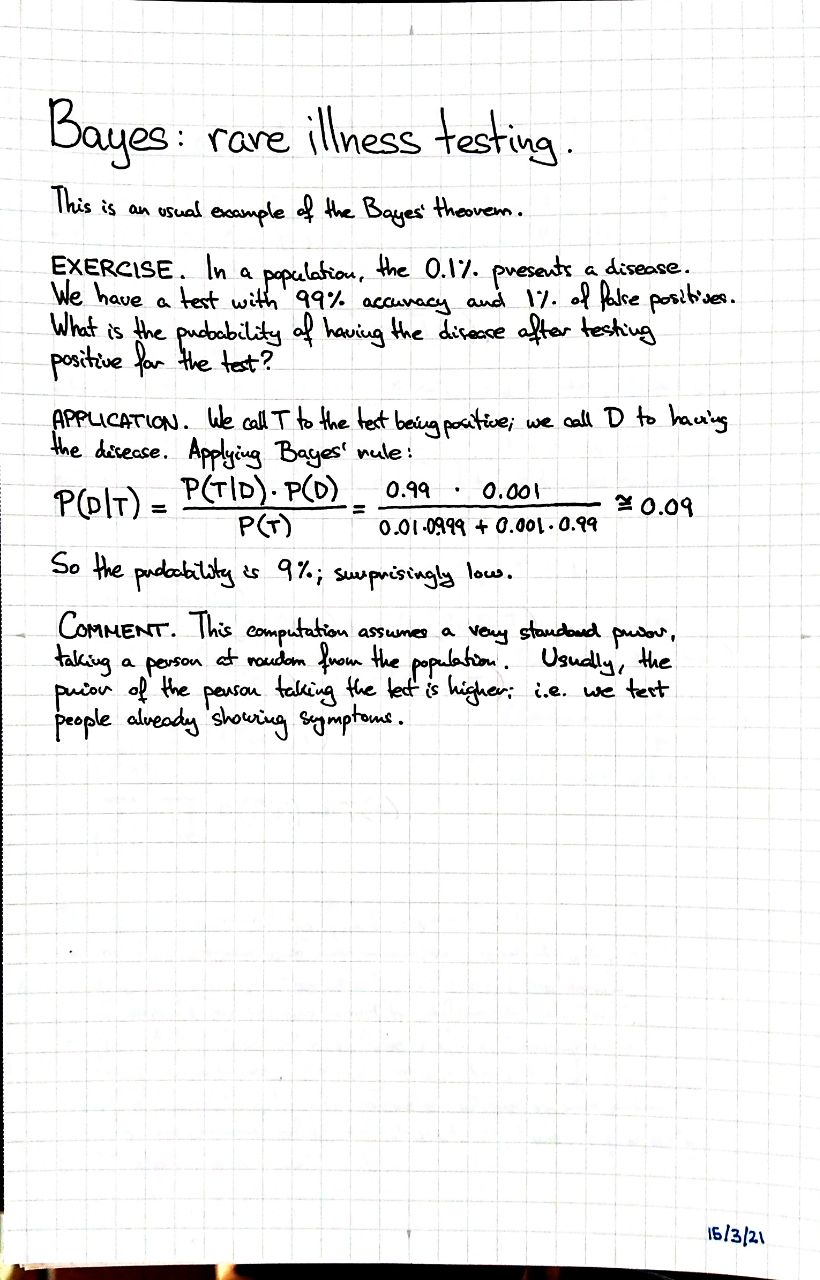 Bayes: rare illness testing.
This is an usual example of the Bayes' theorem.
EXERCISE. In a population, the 0.1% presents a disease.
We have a test with 99% accuracy and 1% of false positives.
What is the probability of having the disease after testing
positive for the test?
APPLICATION. We call T to the test being positive; we call D to having
the disease. Applying Bayes' rule:
P(D|T) = P(T|D) · P(D) / P(T) = 0.99 · 0.001 / 0.01·0.999 + 0.001·0.99 ≅ 0.09
So the probability is 9%; surprisingly low.
COMMENT. This computation assumes a very standard prior,
taking a person at random from the population. Usually, the
prior of the person taking the test is higher; i.e. we test
people already showing symptoms.
15/3/21